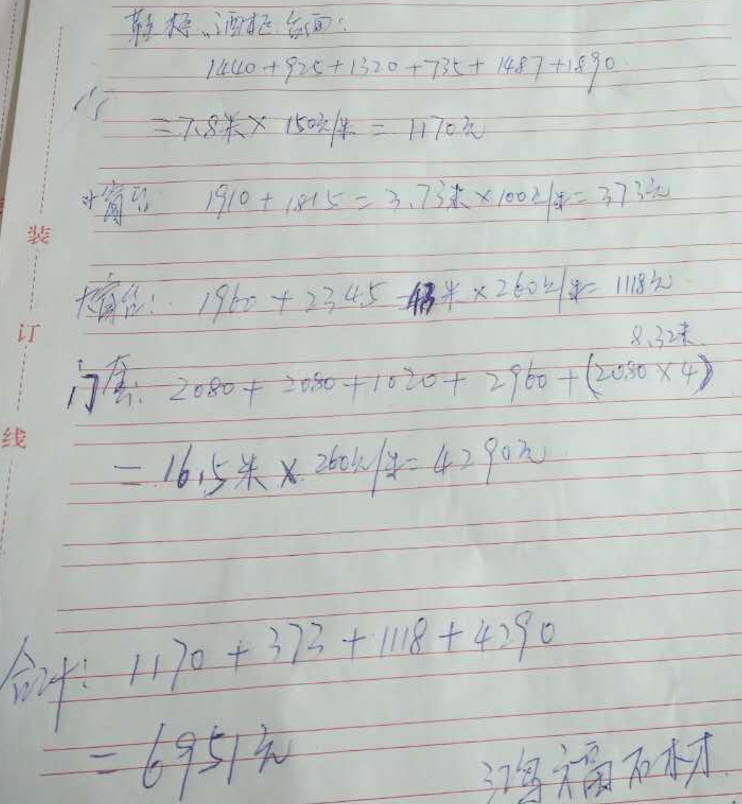 鞋柜、酒柜台面:
1440+925+1320+735+1487+1890
=7.8米×150元/米=1170元
小窗台 1910+1815=3.73米×100元/米=373元
大窗台: 1960+2345=4.3米×260元/米=1118元
8.32米
门套: 2080+2080+1020+2960+(2080×4)
=16.5米×260元/米=4290元
合计: 1170+373+1118+4290
=6951元
石材
装
订
线